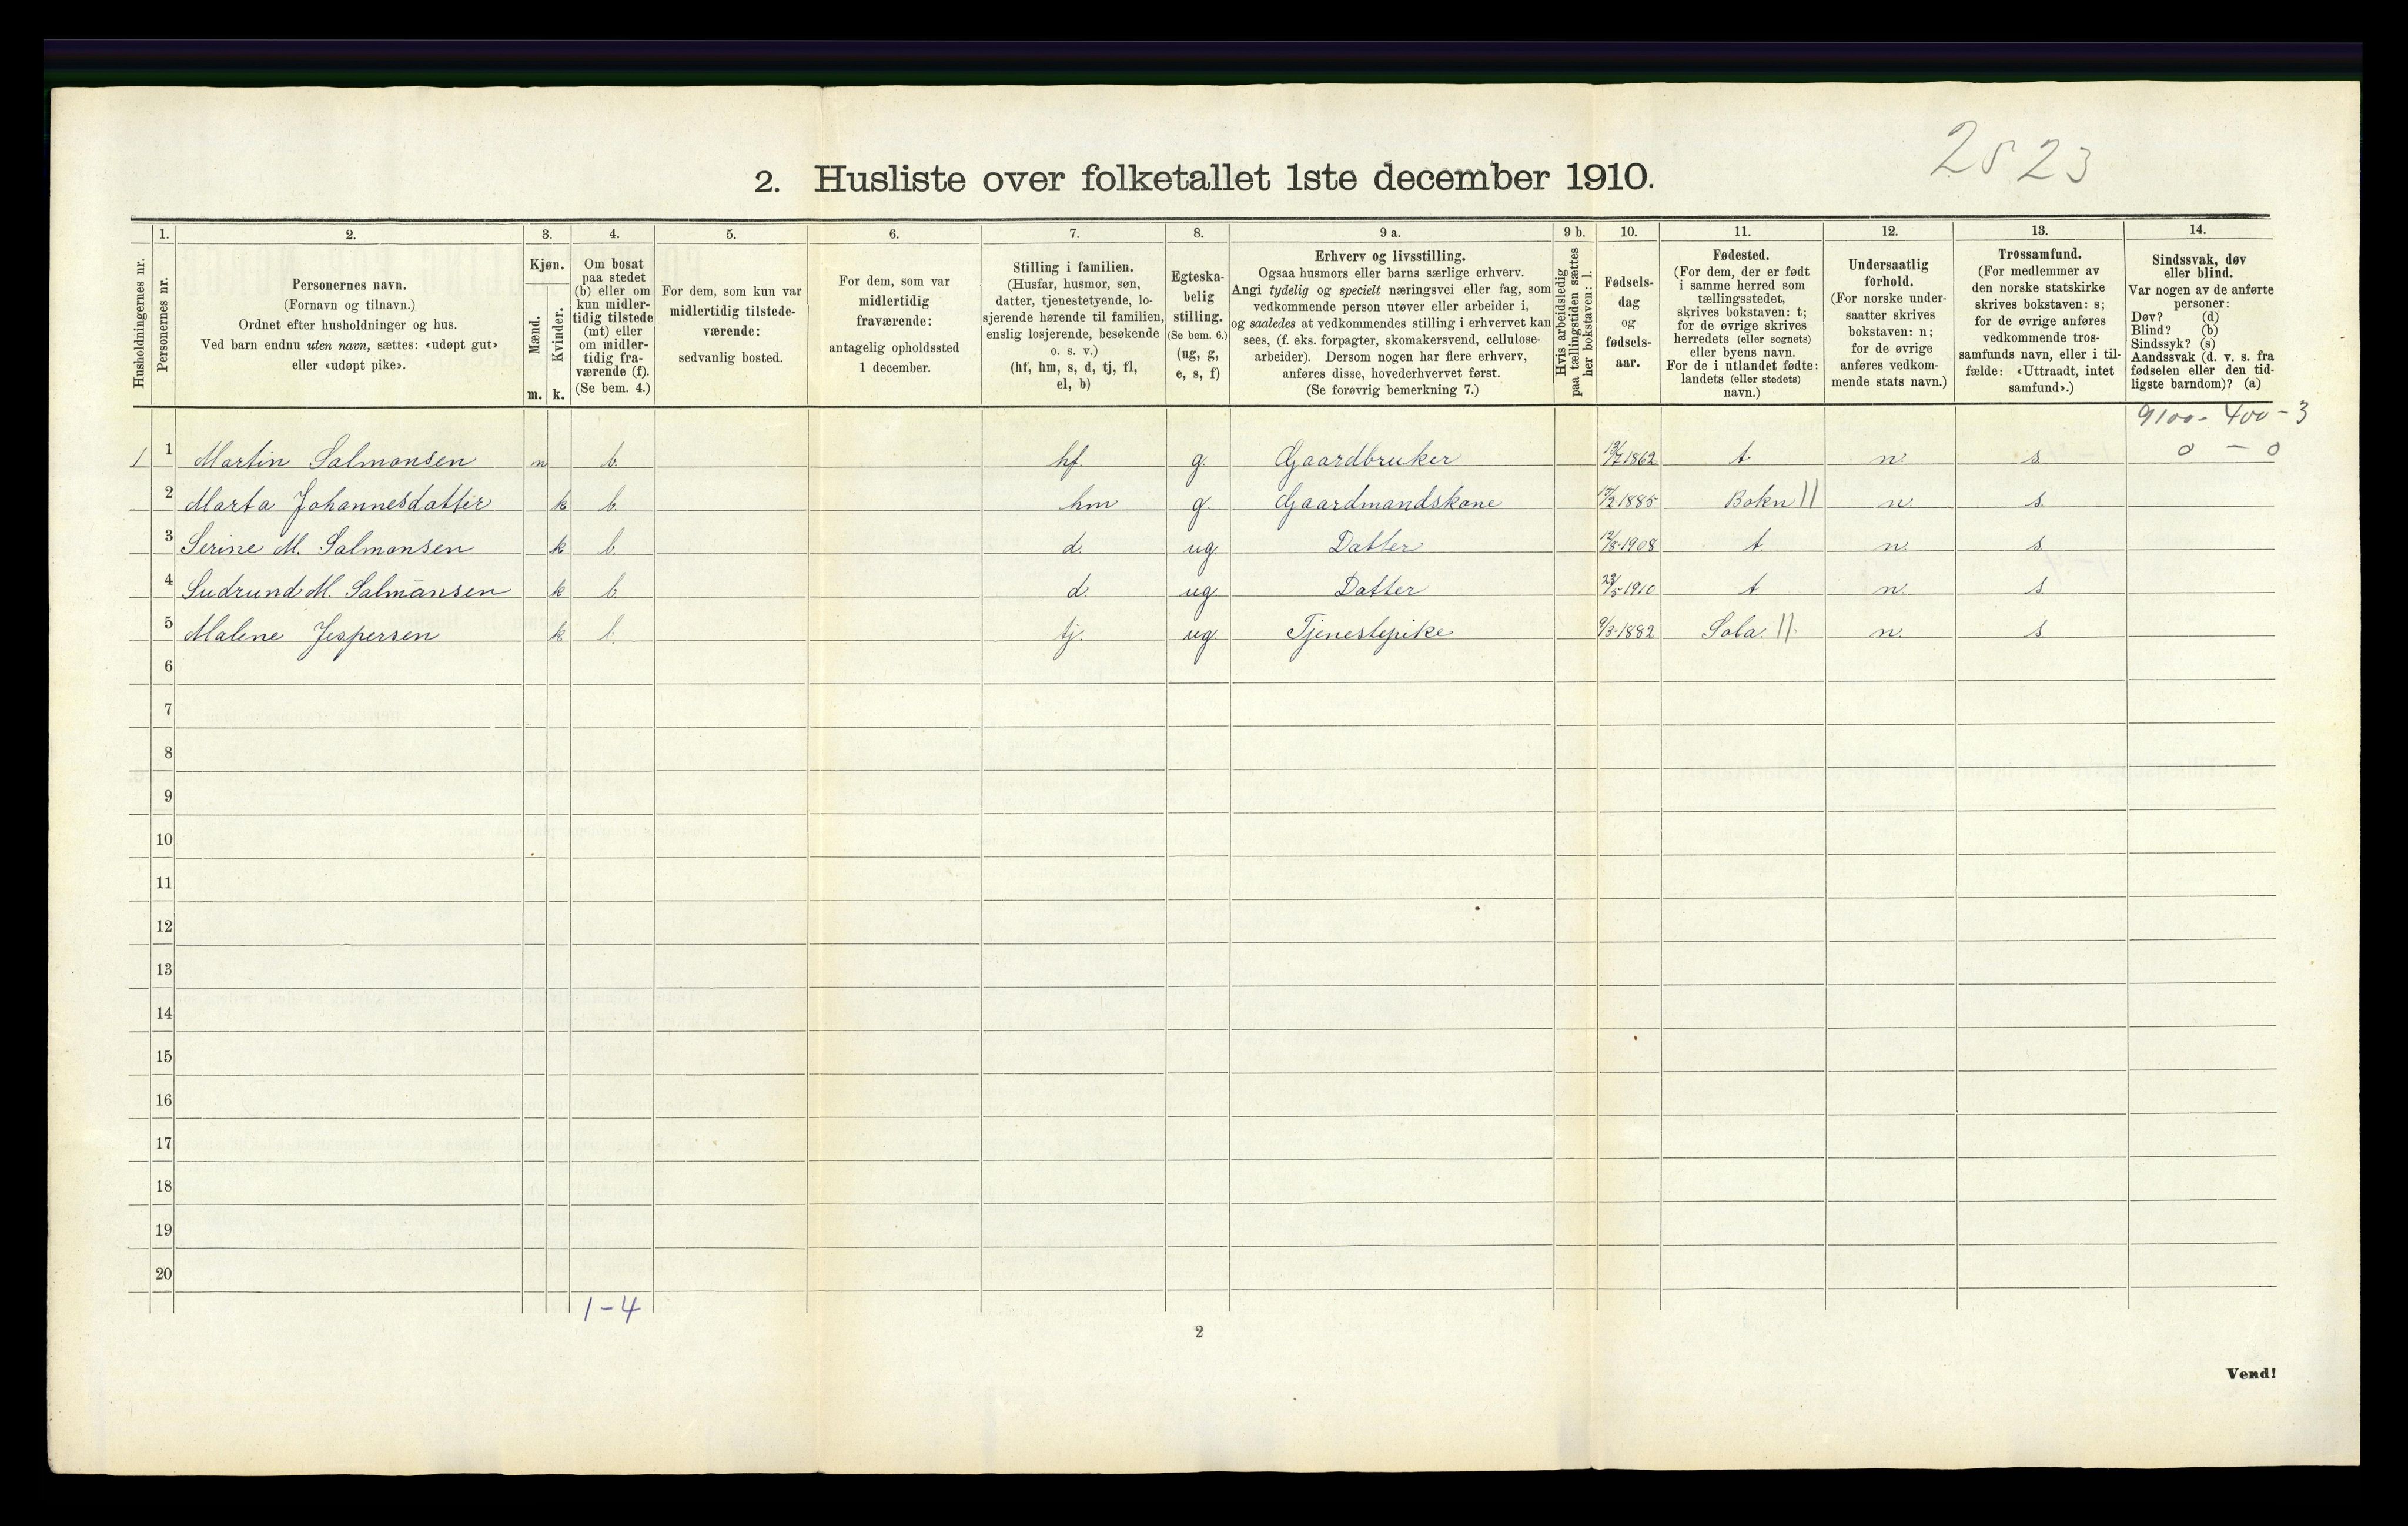 2523
2. Husliste over folketallet 1ste december 1910.
1. 2. 3. 4. 5. 6. 7. 8. 9 a. 9 b. 10. 11. 12. 13. 14.
Husholdningernes nr.
Personernes nr.
Personernes navn.
(Fornavn og tilnavn.)
Ordnet efter husholdninger og hus.
Ved barn endnu uten navn, sættes: «udøpt gut»
eller «udøpt pike».
Kjøn.
Mænd.
Kvinder.
m. k.
Om bosat
paa stedet
(b) eller om
kun midler-
tidig tilstede
(mt) eller
om midler-
tidig fra-
værende (f).
(Se bem. 4.)
For dem, som kun var
midlertidig tilstede-
værende:
sedvanlig bosted.
For dem, som var
midlertidig
fraværende:
antagelig opholdssted
1 december.
Stilling i familien.
(Husfar, husmor, søn,
datter, tjenestetyende, lo-
sjerende hørende til familien,
enslig losjerende, besøkende
o. s. v.)
(hf, hm, s, d, tj, fl,
el, b)
Egteska-
belig
stilling.
(Se bem. 6.)
(ug, g,
e, s, f)
Erhverv og livsstilling.
Ogsaa husmors eller barns særlige erhverv.
Angi tydelig og specielt næringsvei eller fag, som
vedkommende person utøver eller arbeider i,
og saaledes at vedkommendes stilling i erhvervet kan
sees, (f. eks. forpagter, skomakersvend, cellulose-
arbeider). Dersom nogen har flere erhverv,
anføres disse, hovederhvervet først.
(Se forøvrig bemerkning 7.)
Hvis arbeidsledig
paa tællingstiden sættes
her bokstaven: l.
Fødsels-
dag
og
fødsels-
aar.
Fødested.
(For dem, der er født
i samme herred som
tællingsstedet,
skrives bokstaven: t;
for de øvrige skrives
herredets (eller sognets)
eller byens navn.
For de i utlandet fødte:
landets (eller stedets)
navn.)
Undersaatlig
forhold.
(For norske under-
saatter skrives
bokstaven: n;
for de øvrige
anføres vedkom-
mende stats navn.)
Trossamfund.
(For medlemmer av
den norske statskirke
skrives bokstaven: s;
for de øvrige anføres
vedkommende tros-
samfunds navn, eller i til-
fælde: «Uttraadt, intet
samfund».)
Sindssvak, døv
eller blind.
Var nogen av de anførte
personer:
Døv? (d)
Blind? (b)
Sindssyk? (s)
Aandssvak (d. v. s. fra
fødselen eller den tid-
ligste barndom)? (a)
9100 - 400 - 3
0 - 0
1 1 Martin Salmonsen m b. hf. g. Gaardbruker 1862 t n. s.
2 Marta Johannesdatter k b. hm g. Gaardmandskone 1885 Bokn || n. s.
3 Serine M. Salmonsen k b. d. ug Datter 12/8-1908 t. n. s.
4 M. Salmonsen k b. d. ug. Datter 1910 t n. s.
5 Malene Jespersen k b. tj. ug. Tjenestepike 9/3-1882 Sola. || n. s
6
7
8
9
10
11
12
13
14
15
16
17
18
19
20
1-4
2
Vend!